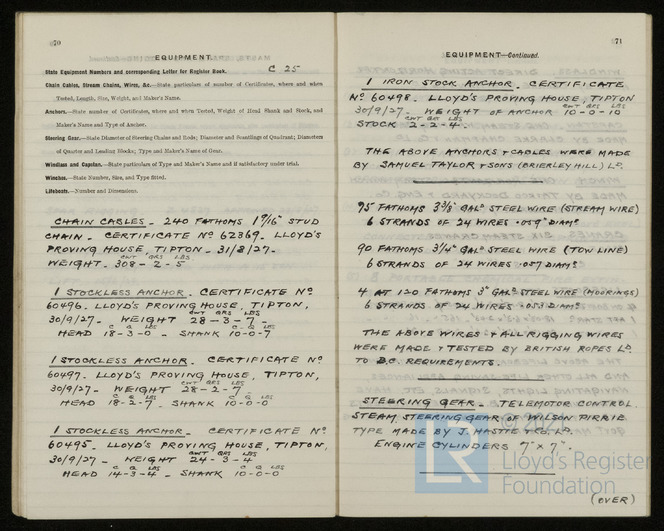 70
EQUIPMENT.
State Equipment Numbers and corresponding Letter for Register Book. C 25
Chain Cables, Stream Chains, Wires, &c.—State particulars of number of Certificates, where and when
Tested, Length, Size, Weight, and Maker's Name.
Anchors.—State number of Certificates, where and when Tested, Weight of Head Shank and Stock, and
Maker's Name and Type of Anchor.
Steering Gear.—State Diameter of Steering Chains and Rods; Diameter and Scantlings of Quadrant; Diameters
of Quarter and Leading Blocks; Type and Maker's Name of Gear.
Windlass and Capstan.—State particulars of Type and Maker's Name and if satisfactory under trial.
Winches.—State Number, Size, and Type fitted.
Lifeboats.—Number and Dimensions.
CHAIN CABLES - 240 FATHOMS 1 9/16" STUD
CHAIN - CERTIFICATE Nº 62369. LLOYD'S
PROVING HOUSE, TIPTON - 31/8/27-
CWT QRS LBS
WEIGHT - 308 - 2 - 5
1 STOCKLESS ANCHOR. CERTIFICATE Nº
60496. LLOYD'S PROVING HOUSE, TIPTON,
CWT QRS LBS
30/9/27- WEIGHT 28-3-7 -
C Q LBS C Q LBS
HEAD 18-3-0 - SHANK 10-0-7
1 STOCKLESS ANCHOR. CERTIFICATE Nº
60497. LLOYD'S PROVING HOUSE, TIPTON,
CWT QRS LBS
30/9/27- WEIGHT 28-2-7 -
C Q LBS C Q LBS
HEAD 18-2-7 - SHANK 10-0-0
1 STOCKLESS ANCHOR - CERTIFICATE Nº
60495. LLOYD'S PROVING HOUSE, TIPTON,
CWT QRS LBS
30/9/27 - WEIGHT 24-3-4
C Q LBS C Q LBS
HEAD 14-3-4 - SHANK 10-0-0
71
EQUIPMENT—Continued.
1 IRON STOCK ANCHOR. CERTIFICATE
Nº 60498. LLOYD'S PROVING HOUSE, TIPTON
CWT QRS LBS
30/9/27. WEIGHT OF ANCHOR 10-0-10
CWT QRS LBS
STOCK 2-2-4.
THE ABOVE ANCHORS & CABLES WERE MADE
BY SAMUEL TAYLOR & SONS (BRIERLEY HILL) Lº.
95 FATHOMS 3 3/8" GALº STEEL WIRE (STREAM WIRE)
6 STRANDS OF 24 WIRES .059" DIAMR
90 FATHOMS 3 1/4" GALº STEEL WIRE (TOW LINE)
6 STRANDS OF 24 WIRES .057 DIAMR
4 AT 120 FATHOMS 3" GALº STEEL WIRE (MOORINGS)
6 STRANDS OF 24 WIRES .053 DIAMR
THE ABOVE WIRES & ALL RIGGING WIRES
WERE MADE & TESTED BY BRITISH ROPES Lº.
TO B.C. REQUIREMENTS.
STEERING GEAR - TELEMOTOR CONTROL.
STEAM STEERING GEAR OF WILSON PIRRIE
TYPE MADE BY J. HASTIE & Cº. Lº.
ENGINE CYLINDERS 7" x 7".
(OVER)
LR
Lloyd's Register
Foundation